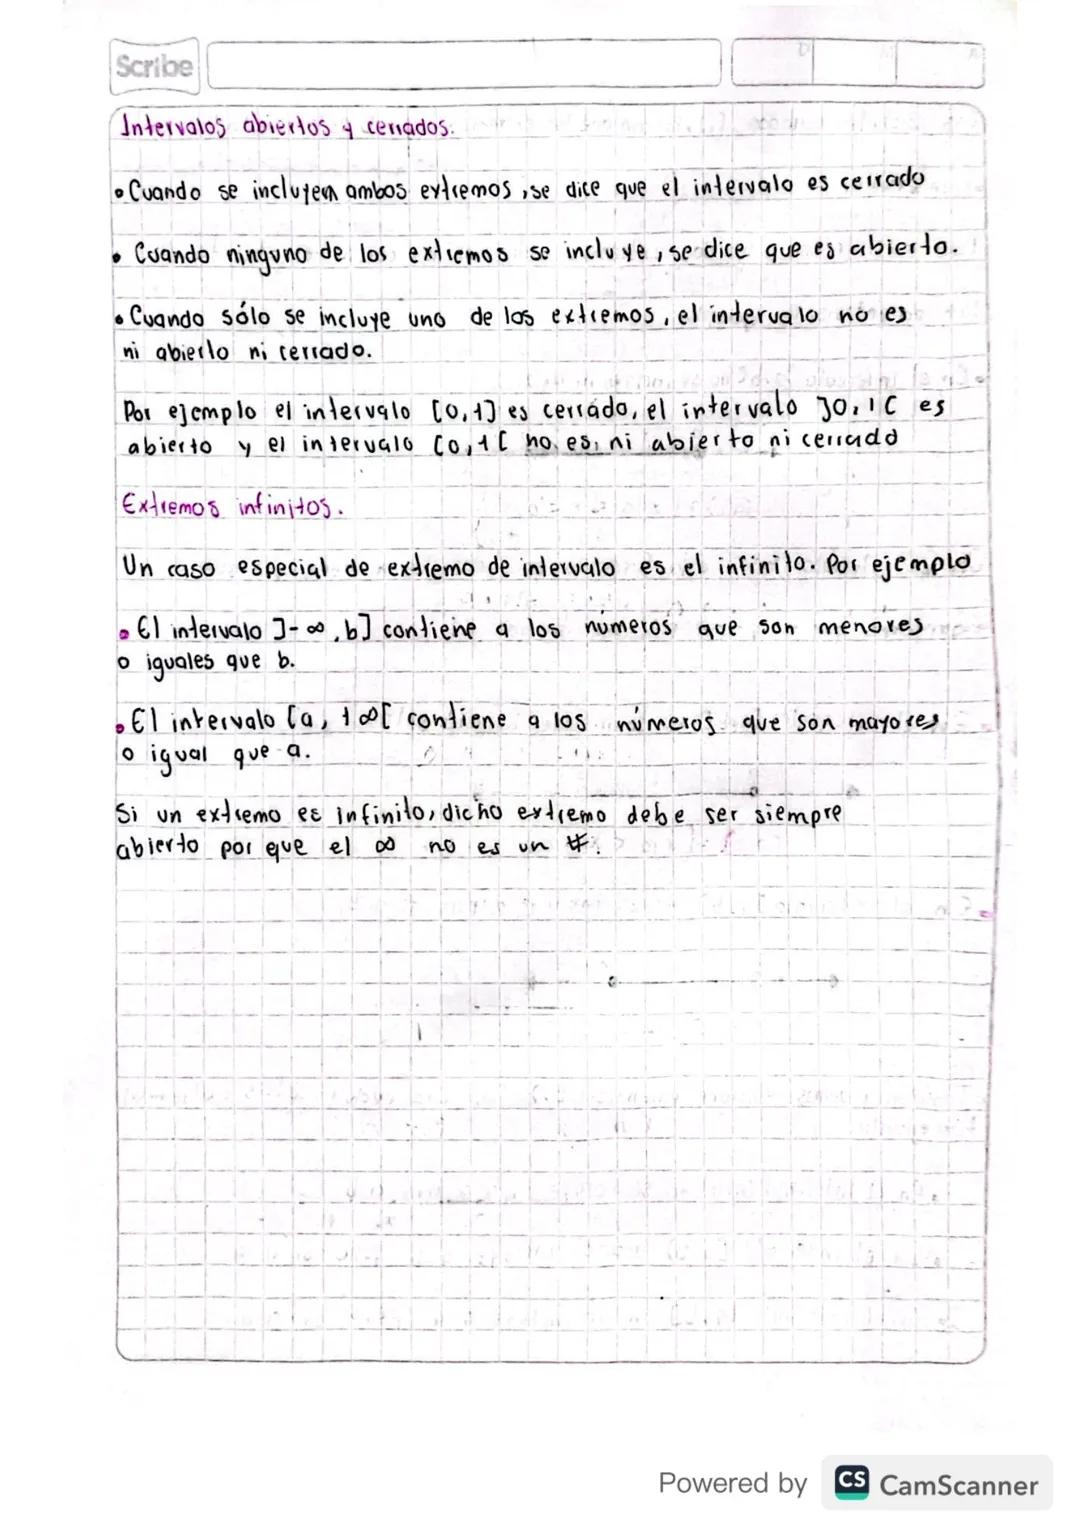 Scribe
Intervalos abiertos y cerrados.
• Cuando se incluyen ambos extremos, se dice que el intervalo es cerrado
• Cuando ninguno de los extremos se incluye, se dice que es abierto.
• Cuando sólo se incluye uno de los extremos, el intervalo no es
ni abierto ni cerrado.
Por ejemplo el intervalo [0,1] es cerrado, el intervalo ]0,1[ es
abierto y el intervalo [0,1[ no es ni abierto ni cerrado
Extremos infinitos.
Un caso especial de extremo de intervalo es el infinito. Por ejemplo
• El intervalo ]-∞, b] contiene a los números que son menores
o iguales que b.
• El intervalo [a, +∞[ contiene a los números que son mayores
o igual que a.
Si un extremo es infinito, dicho extremo debe ser siempre
abierto por que el ∞ no es un #.
Powered by CS CamScanner